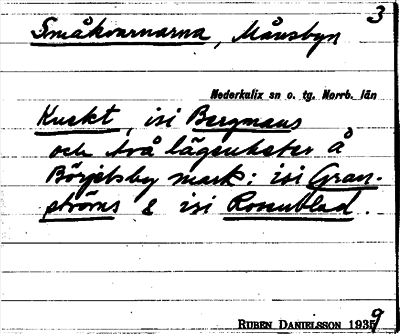 3
Småkvarnarna, Månsbyn
Nederkalix sn o. tg. Norrb. län
Kuskt, isi Bergmans
och två lägenheter å
Börjelsby mark: isi Gran-
ströms & isi Rosenblad.
RUBEN DANIELSSON 1939